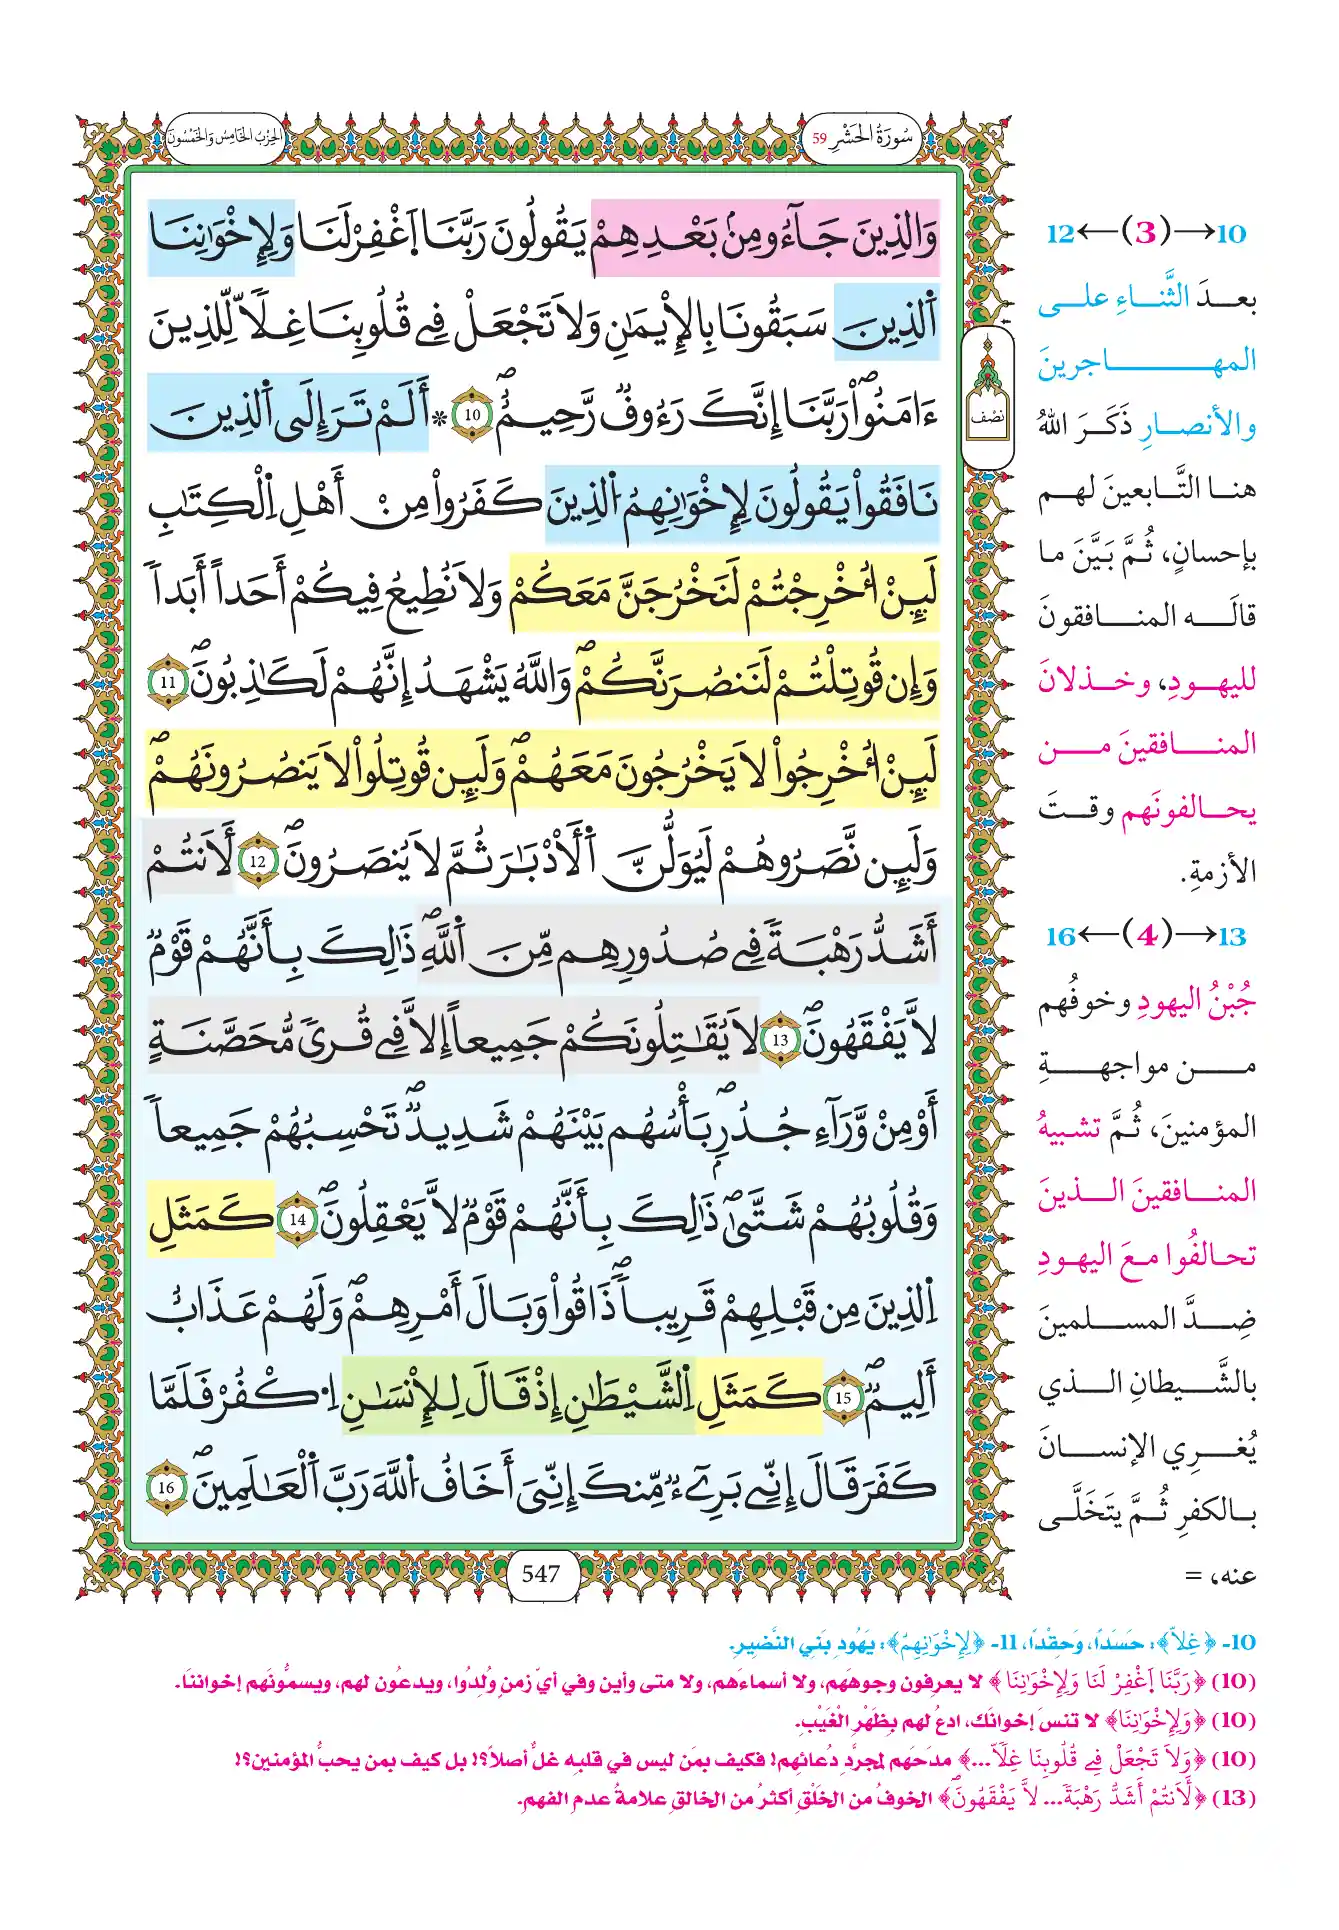 سُورَةُ الحَشْرِ 59
الحِزْبُ الخَامِسُ وَالخَمْسُونَ
وَالذِينَ جَآءُو مِنۢ بَعْدِهِمْ يَقُولُونَ رَبَّنَا اَ۪غْفِرْ لَنَا وَلِإِخْوَٰنِنَا
اَ۬لذِينَ سَبَقُونَا بِالْإِيمَٰنِ وَلَا تَجْعَلْ فِے قُلُوبِنَا غِلّاٗ لِّلذِينَ
ءَامَنُواْ رَبَّنَا إِنَّكَ رَءُوفٞ رَّحِيمٌۖ 10 * أَلَمْ تَرَ إِلَى اَ۬لذِينَ
نَافَقُواْ يَقُولُونَ لِإِخْوَٰنِهِمُ اُ۬لذِينَ كَفَرُواْ مِنْ أَهْلِ اِ۬لْكِتَٰبِ
لَئِنُ ا۟خْرِجْتُمْ لَنَخْرُجَنَّ مَعَكُمْ وَلَا نُطِيعُ فِيكُمُۥٓ أَحَداً أَبَداٗ
وَإِن قُوتِلْتُمْ لَنَنصُرَنَّكُمْۖ وَاللَّهُ يَشْهَدُ إِنَّهُمْ لَكَٰذِبُونَۖ 11
لَئِنُ ا۟خْرِجُواْ لَا يَخْرُجُونَ مَعَهُمْۖ وَلَئِن قُوتِلُواْ لَا يَنصُرُونَهُمْۖ
وَلَئِن نَّصَرُوهُمْ لَيُوَلُّنَّ اَ۬لْأَدْبَٰرَ ثُمَّ لَا يُنصَرُونَۖ 12 لَأَنتُمُۥٓ
أَشَدُّ رَهْبَةٗ فِے صُدُورِهِم مِّنَ اَ۬للَّهِۖ ذَٰلِكَ بِأَنَّهُمْ قَوْمٞ
لَّا يَفْقَهُونَۖ 13 لَا يُقَٰتِلُونَكُمْ جَمِيعاً إِلَّا فِے قُرىٗ مُّحَصَّنَةٍ
أَوْ مِنْ وَّرَآءِ جُدُرِۢۖ بَأْسُهُم بَيْنَهُمْ شَدِيدٞۖ تَحْسِبُهُمْ جَمِيعاٗ
وَقُلُوبُهُمْ شَتَّىٰۖ ذَٰلِكَ بِأَنَّهُمْ قَوْمٞ لَّا يَعْقِلُونَۖ 14 كَمَثَلِ
اِ۬لذِينَ مِن قَبْلِهِمْ قَرِيباٗۖ ذَاقُواْ وَبَالَ أَمْرِهِمْۖ وَلَهُمْ عَذَابٌ
أَلِيمٞۖ 15 كَمَثَلِ اِ۬لشَّيْطَٰنِ إِذْ قَالَ لِلْإِنسَٰنِ اِ۟كْفُرْ فَلَمَّا
كَفَرَ قَالَ إِنِّے بَرِےٓءٞ مِّنكَ إِنِّيَ أَخَافُ اُ۬للَّهَ رَبَّ اَ۬لْعَٰلَمِينَۖ 16
547
نصف
10→(3)←12
بعدَ الثَّناءِ على
المهاجرينَ
والأنصارِ ذَكَرَ اللهُ
هنا التَّابعينَ لهم
بإحسانٍ، ثُمَّ بَيَّنَ ما
قالَه المنافقونَ
لليهودِ، وخذلانَ
المنافقينَ من
يحالفونَهم وقتَ
الأزمةِ.
13→(4)←16
جُبْنُ اليهودِ وخوفُهم
من مواجهةِ
المؤمنينَ، ثُمَّ تشبيهُ
المنافقينَ الذينَ
تحالفُوا معَ اليهودِ
ضِدَّ المسلمينَ
بالشَّيطانِ الذي
يُغري الإنسانَ
بالكفرِ ثُمَّ يتَخَلَّى
عنه، =
10- ﴿غِلّاٗ﴾: حَسَدًا، وَحِقْدًا، 11- ﴿لِإِخْوَٰنِهِمُ﴾: يَهُودِ بَنِي النَّضِيرِ.
(10) ﴿رَبَّنَا اَ۪غْفِرْ لَنَا وَلِإِخْوَٰنِنَا﴾ لا يعرفون وجوهَهم، ولا أسماءَهم، ولا متى وأين وفي أيِّ زمنٍ وُلِدُوا، ويدعُون لهم، ويسمُّونَهم إخواننَا.
(10) ﴿وَلِإِخْوَٰنِنَا﴾ لا تنسَ إخوانَك، ادعُ لهم بِظَهْرِ الْغَيْبِ.
(10) ﴿وَلَا تَجْعَلْ فِے قُلُوبِنَا غِلّاٗ...﴾ مدحَهم لمجرَّدِ دُعائِهم! فكيف بمَن ليس في قلبِه غلٌّ أصلاً؟! بل كيف بمن يحبُّ المؤمنين؟!
(13) ﴿لَأَنتُمُۥٓ أَشَدُّ رَهْبَةٗ... لَّا يَفْقَهُونَۖ﴾ الخوفُ من الخَلْقِ أكثرُ من الخالقِ علامةُ عدمِ الفهمِ.